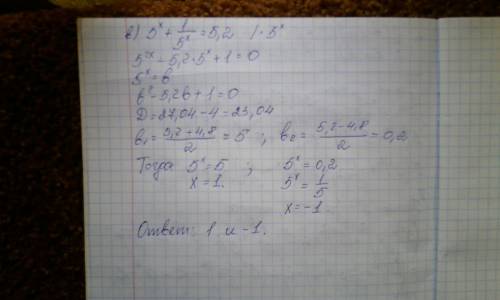 в) 5ˣ + 1/5ˣ = 5,2 / · 5ˣ
5²ˣ - 5,2 · 5ˣ + 1 = 0
5ˣ = b
b² - 5,2b + 1 = 0
D = 27,04 - 4 = 23,04
b₁ = (5,2 + 4,8)/2 = 5 ; b₂ = (5,2 - 4,8)/2 = 0,2
Тогда 5ˣ = 5 ; 5ˣ = 0,2
x = 1. 5ˣ = 1/5
x = -1.
Ответ: 1 и -1.